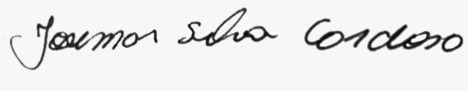 Josemar Silva Cardoso